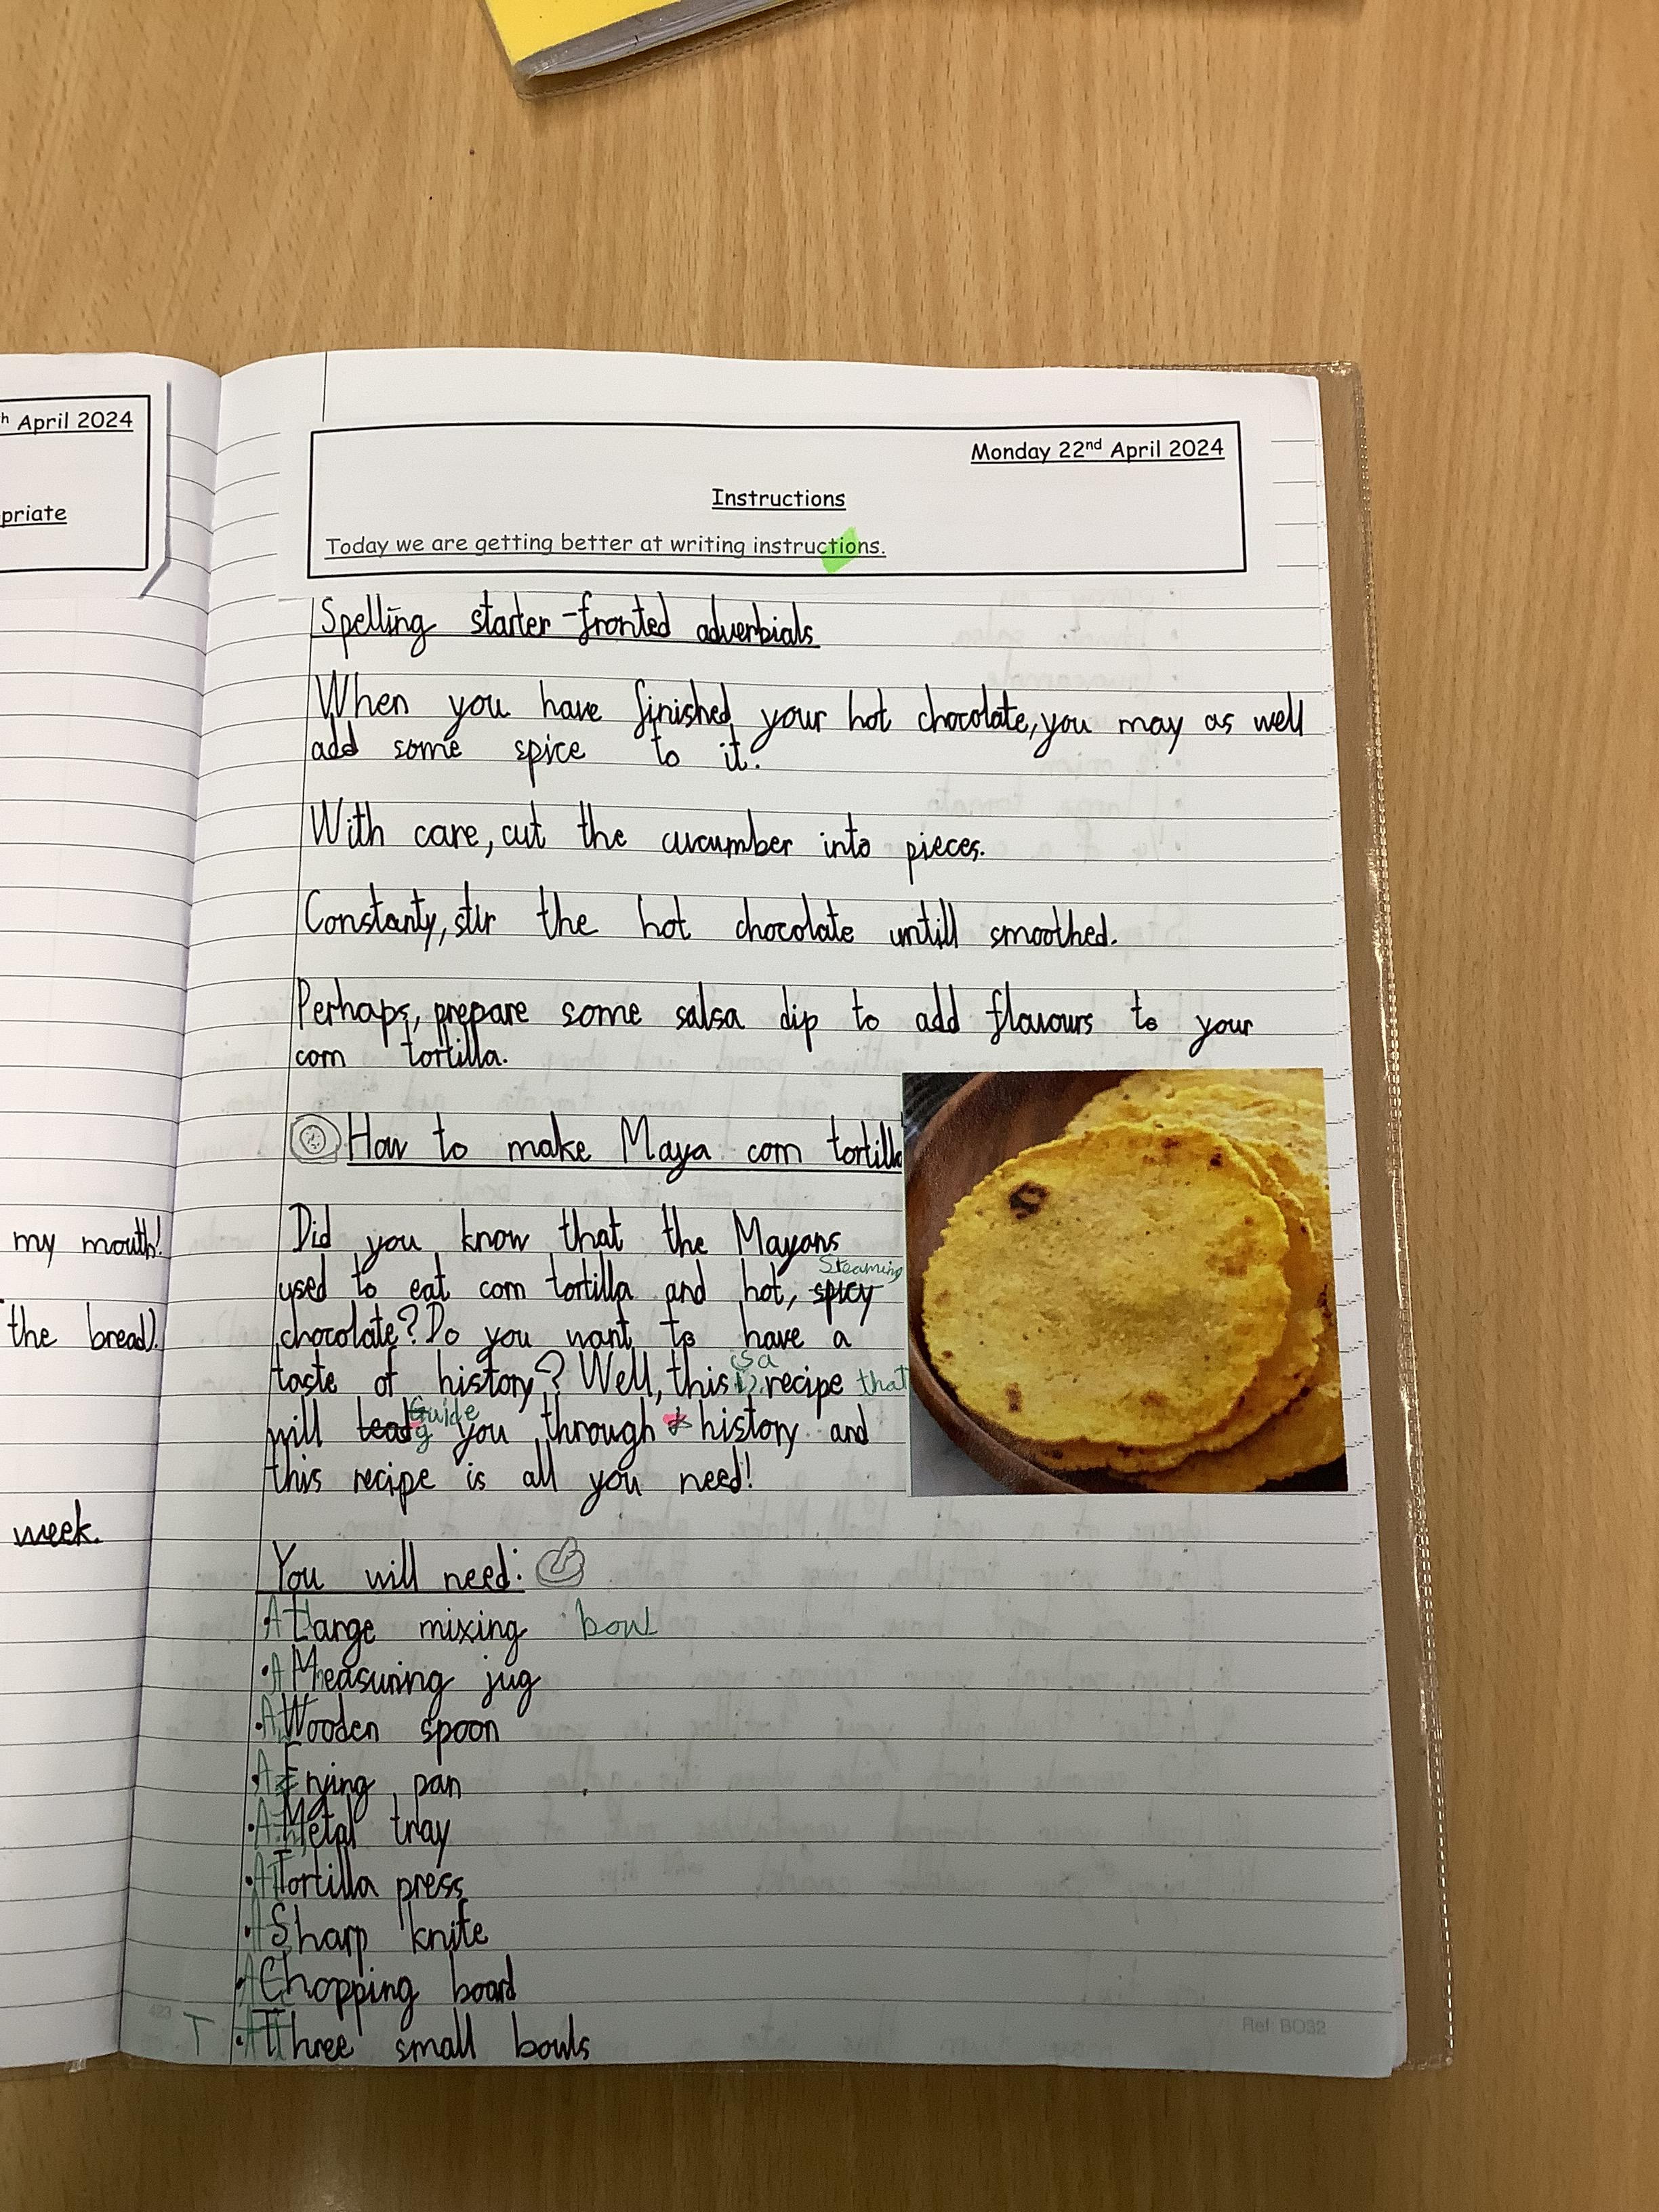 h April 2024
priate
my mouth!
the bread).
week.
Monday 22nd April 2024
Instructions
Today we are getting better at writing instructions.
Spelling starter - fronted adverbials
When you have finished your hot chocolate, you may as well
add some spice to it.
With care, cut the cucumber into pieces.
Constanty, stir the hot chocolate untill smoothed.
Perhaps, prepare some salsa dip to add flavours to your
corn tortilla.
How to make Maya corn tortilla
Did you know that the Mayans
Steaming
used to eat corn tortilla and hot, spicy
chocolate? Do you want to have a
is a
taste of history? Well, this recipe that
Guide
will you through history and
this recipe is all you need!
You will need:
A Large mixing bowl
• A Measuring jug
• A Wooden spoon
• A Frying pan
• A Metal tray
• A Tortilla press
• A Sharp knife
• A Chopping board
T • Three small bowls
Ref: BO32